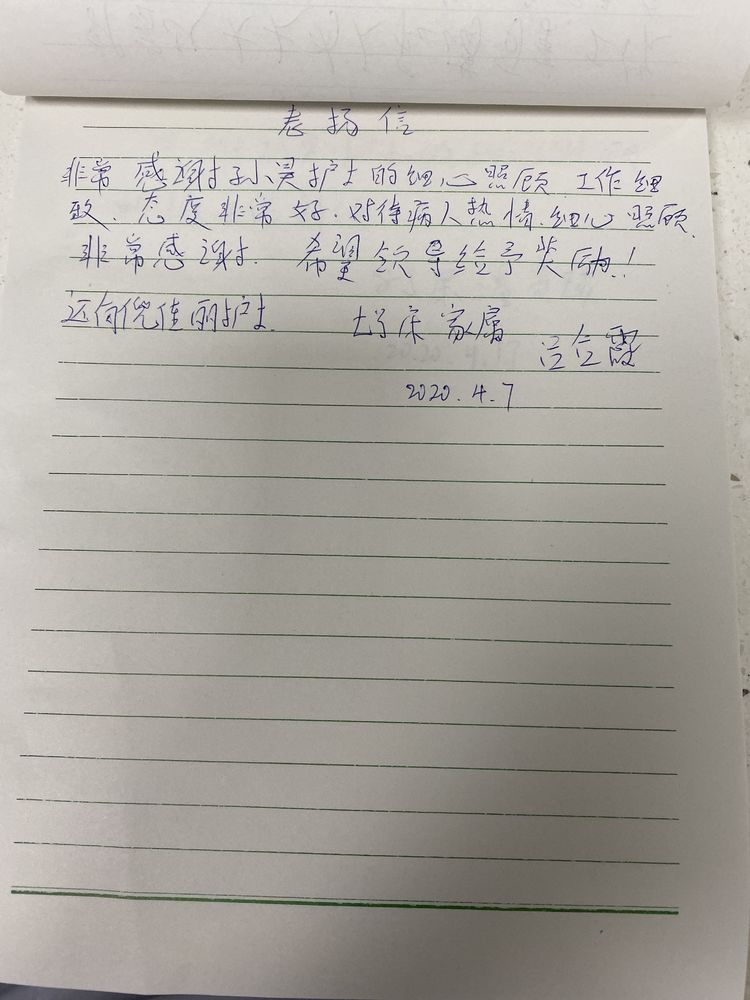 表扬信
非常感谢孙昊护士的细心照顾 工作细
致、态度非常好.对待病人热情.细心照顾.
非常感谢. 希望领导给予奖励!
还有倪佳丽护士. 增床家属
2020.4.7